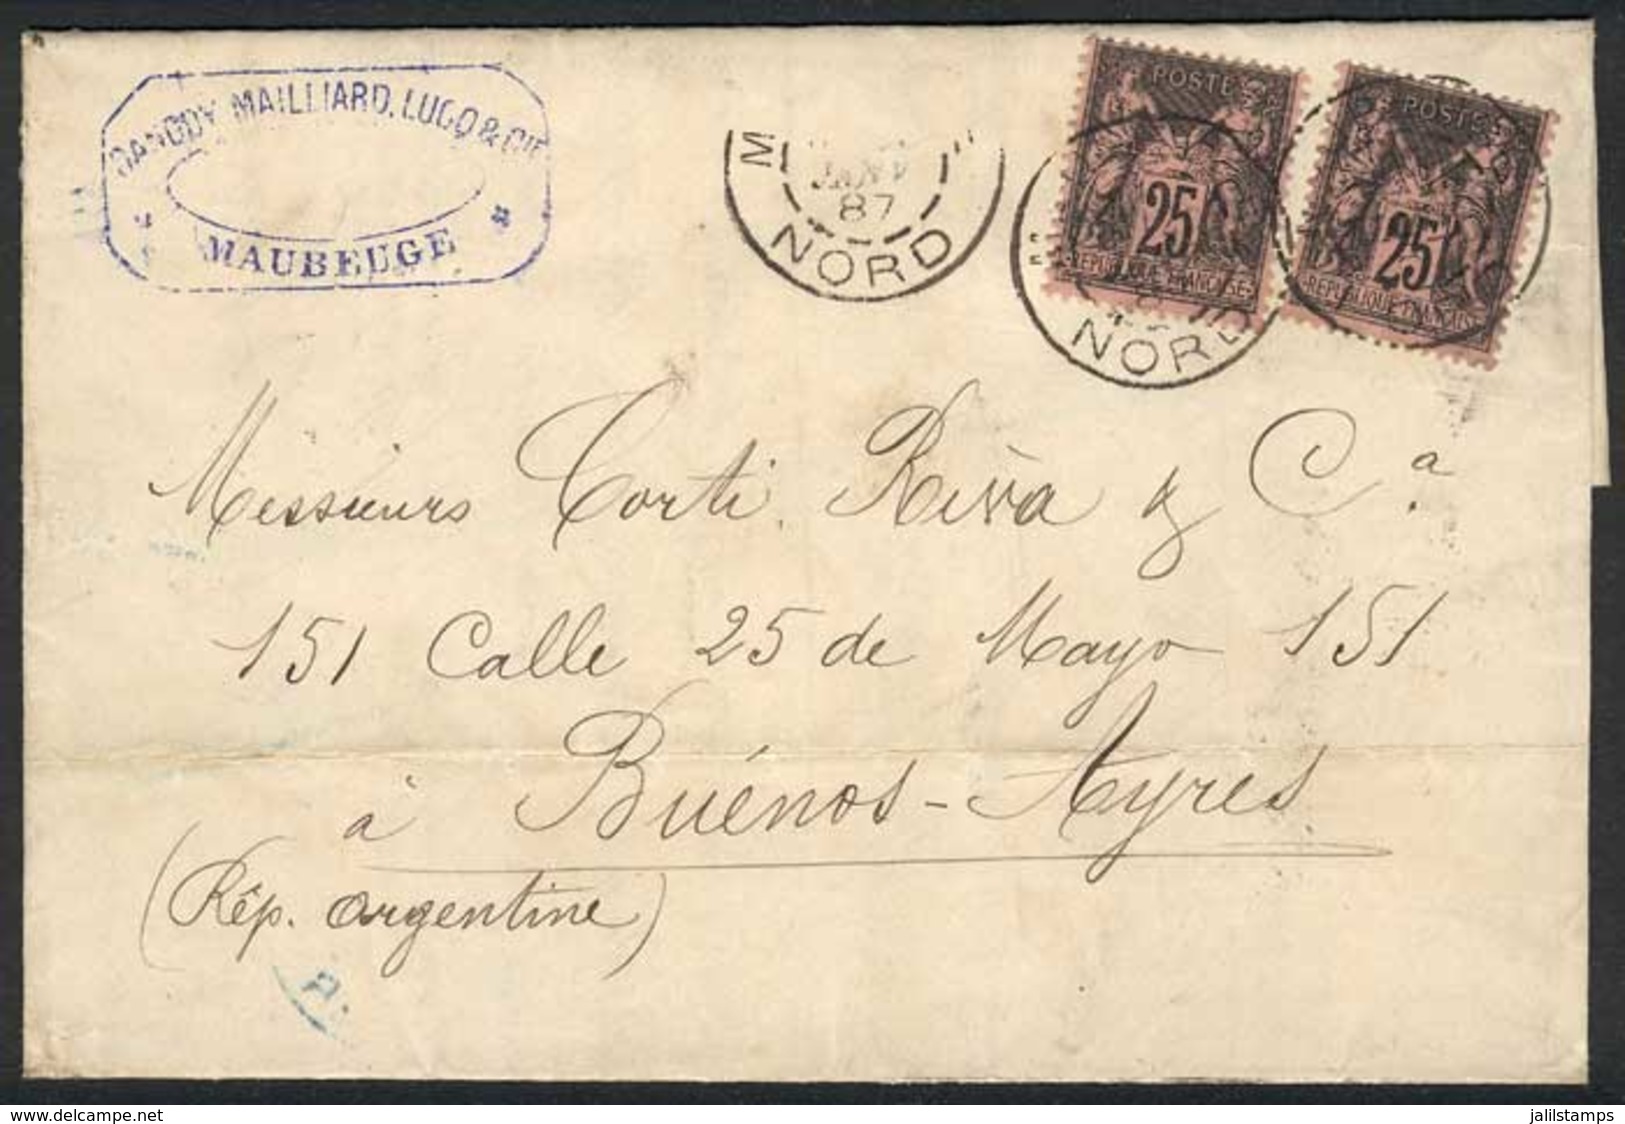 MAILLIARD, LUCQ & CIE
MAUBEUGE
M
JANV
87
NORD
POSTES
25
REPUBLIQUE FRANCAISE
NORD
POSTES
25
REPUBLIQUE FRANCAISE
Messieurs Corti Riva & Cª.
151 Calle 25 de Mayo 151
à Buénos-Ayres
(Rép. Argentine)
delcampe.net
jalilstamps